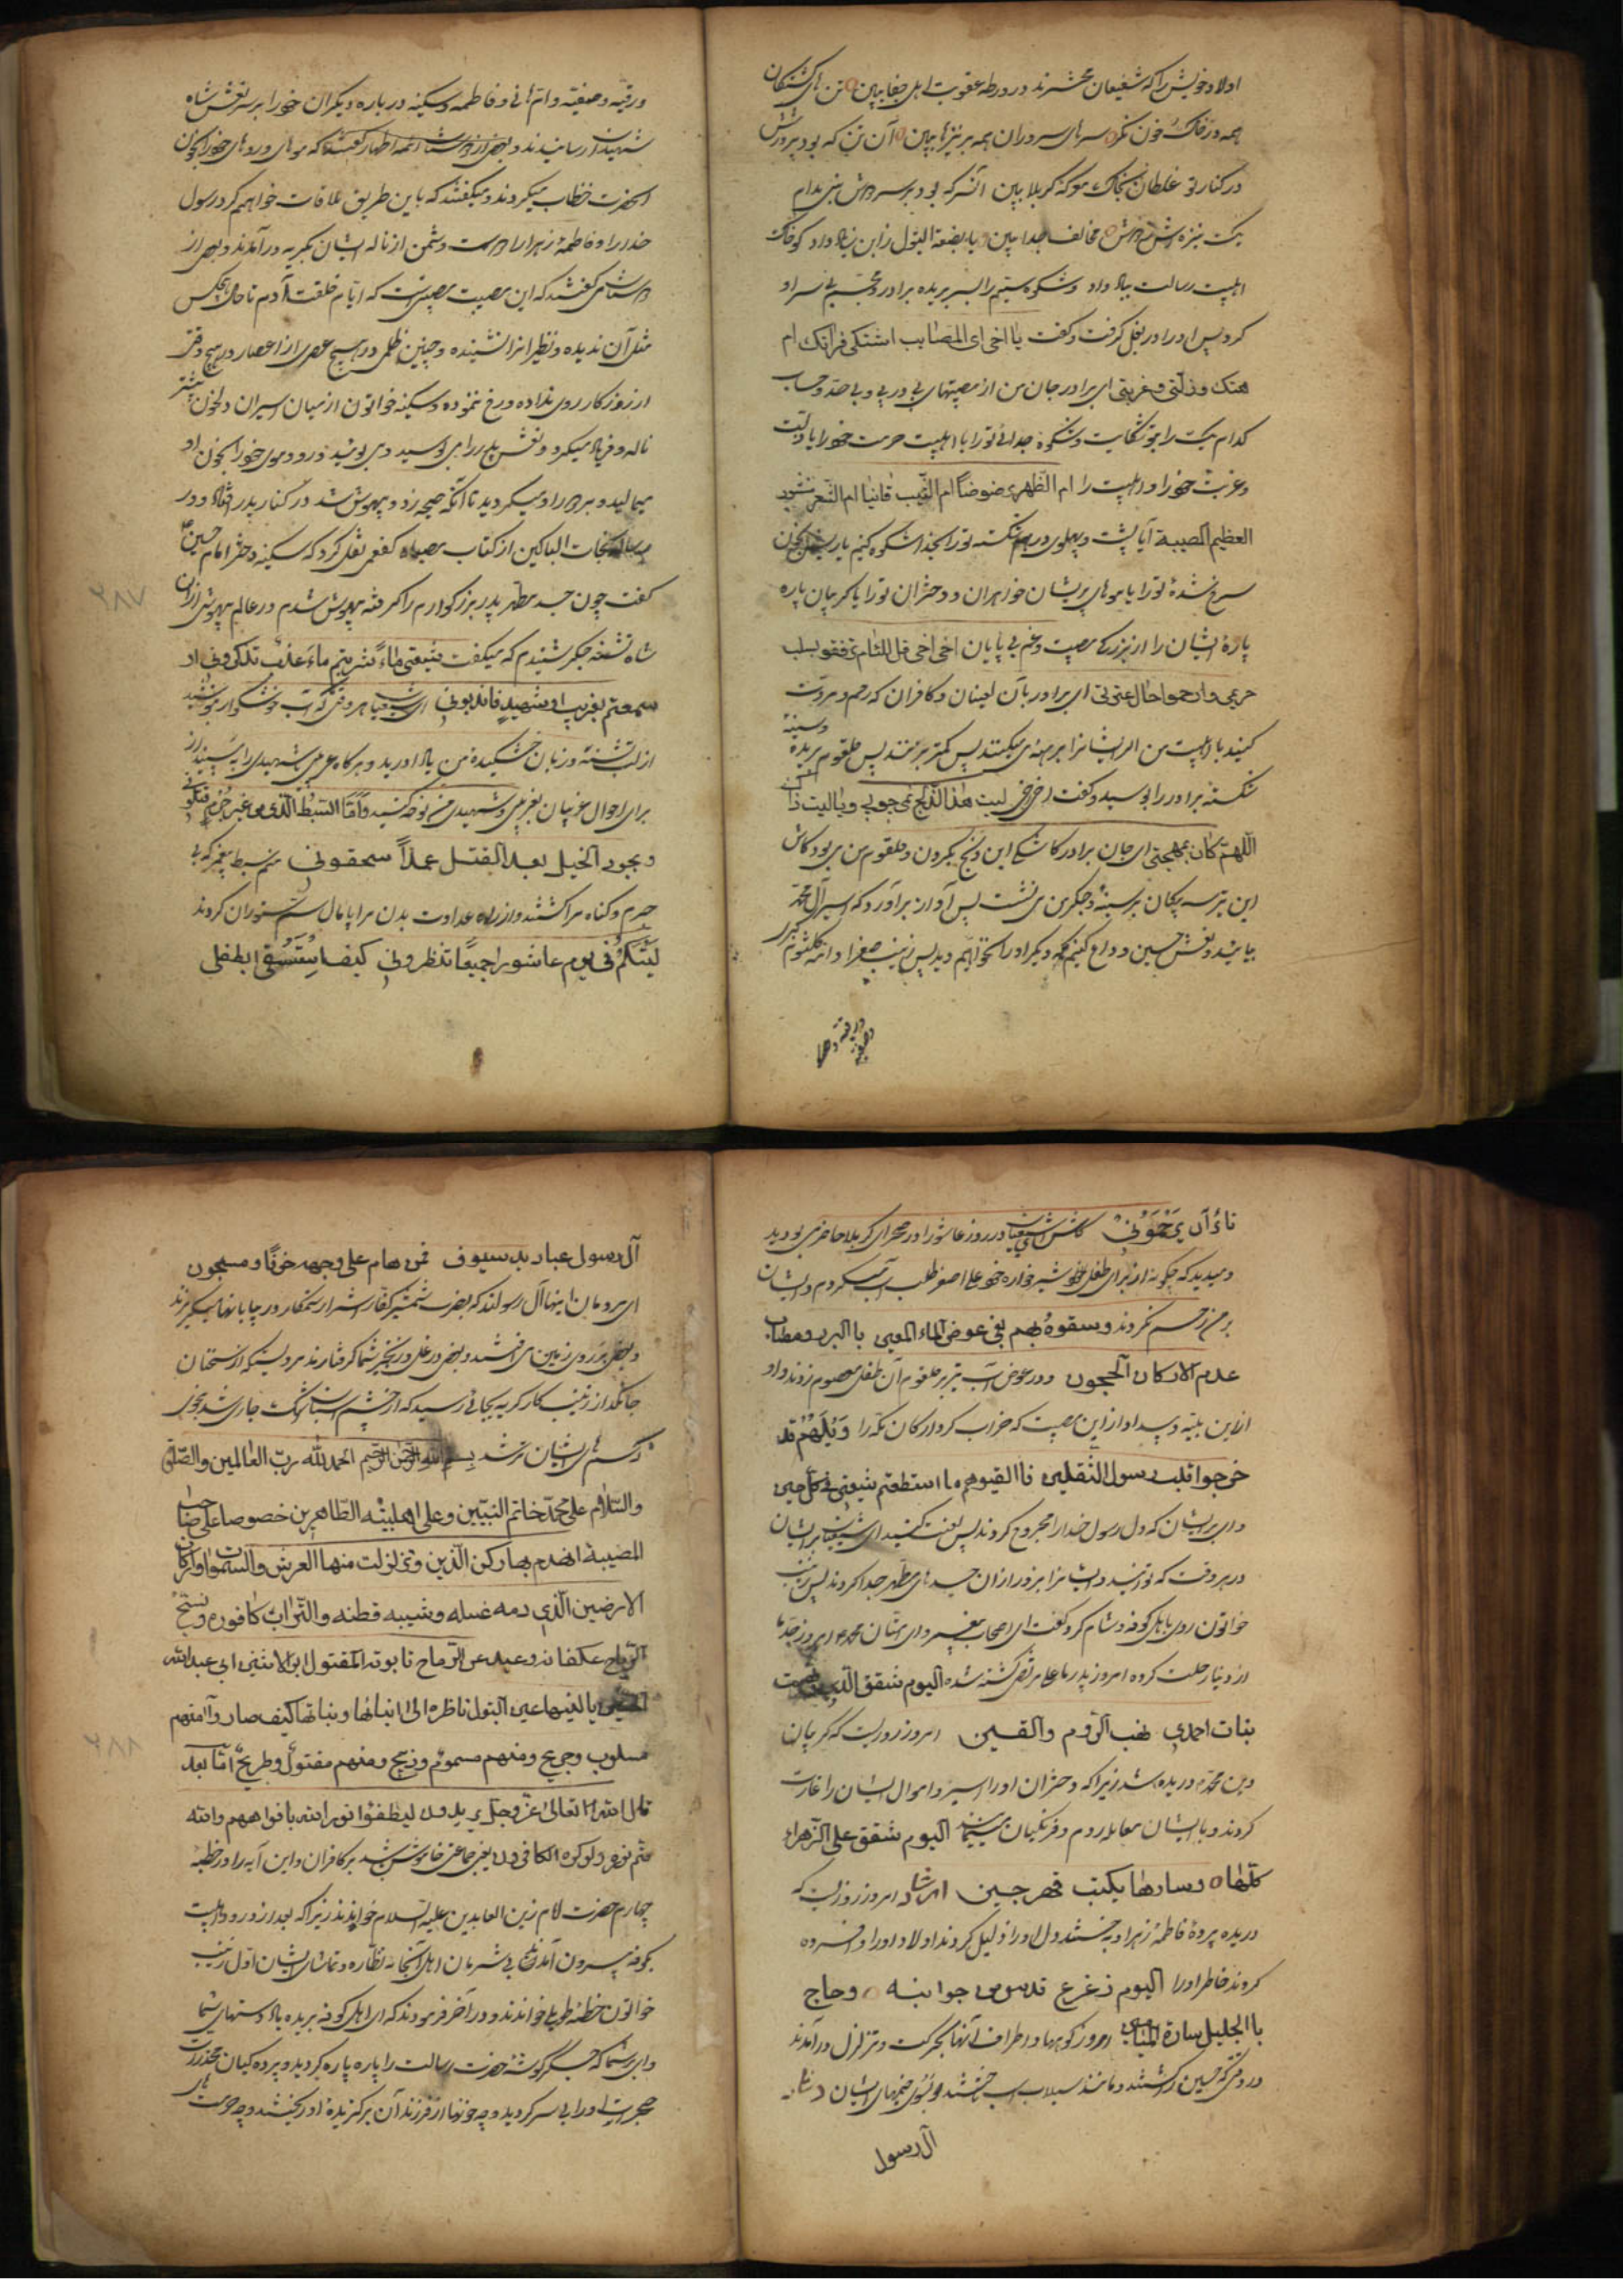 اولاد خویش را که شفیعان محشرند در ورطه عقوبت اهل جفا ببین تن های کشتگان
همه در خاک و خون نکر سرهای سروران همه بر نیزها ببین آن تن که بود پرورشش
در کنار تو غلطان بخاک معرکه کربلا ببین آن سر که بود بر سر دوش نبی مدام
یک نیزه اش ز دوش مخالف جدا ببین یا بضعة البتول ز ابن زیاد داد کو خاک
اهلبیت رسالت بباد داد و شکوه سیتم را بسر بریده برادر و جسم بی سر او
کرد پس او را در بغل کرفت و کفت یا اخی ای المصایب اشتکی فراقک ام
هتک و ذلتی و غربتی ای برادر جان من از مصیبتهای پی در پی و بی حد و حساب
کدام یک را بتو شکایت و شکوه جدائی تو را با اهلبیت حرمت خود را یا ذلت
و غربت خود را و اهلبیت را ام الظهر مرضوضا ام الشیب قانیا ام النحر منحور
العظیم المصیبة آیا پشت و پهلوی درهم شکسته تو را بخدا شکوه کنیم یا ریش بخون
سرخ شده تو را یا موهای پریشان خواهران و دختران تو را یا کریبان پاره
پاره ایشان را از بزرکی مصیبت و غم بی پایان اخی اخی قل للئام ترفقو بسلب
حریمی وارحموا حال عترتی ای برادر بآن لعینان و کافران که رحم و مروت
کنید با اهلبیت من ایشانرا برهنه می‌کنند پس کمتر بزنند پس حلقوم بریده و سینه
شکسته برادر را بوسید و کفت اخی اخی لیت هذا الذبح بی جوبی و یا لیت ذاک
اللهم کان بمهجتی ای جان برادر کاشکی این ذبح بکردن و حلقوم من می بود کاش
این تیر سه پیکان بر سینه و جکر من می نشست پس آواز برآورد که ای اسیران آل محمد
بیائید و نعش حسین وداع کنیم که دیکر او را نخواهیم دید پس زینب صغرا و ام کلثوم کبرا
و رقیه و صفیه
ورقیه و صفیه و ام هانی و فاطمه و سکینه در باره دیکران خود را بر سر نعش شاه
شهیدان رسانیدند و بعد از دوستان ائمه اطهار کفتند که موهای و روهای خود را بخون
آنحضرت خضاب میکردند و میکفتند که باین طریق ملاقات خواهیم کرد رسول
خدا را و فاطمه زهرا را دوست و دشمن از ناله ایشان بکریه در آمدند و بعد از
دوستان می کفتند که این مصیبت مصیبتی است که ایام خلقت آدم تا حال هیچکس
مثل آن ندیده و نظیر آنرا نشنیده و چنین ظلمی در هیچ عصری از اعصار و در هیچ وقتی
از روزکار روی نداده و رخ ننموده و سکینه خواتون از میان اسیران دلخون بیشتر
ناله و فریاد میکرد و نعش پدر را می بوسید و می بوئید و رو و موی خود را بخون او
میمالید و بر دور او میکردید تا آنکه صیحه زد و بیهوش شد در کنار پدر افتاد و در
رساله نجات الباکین از کتاب مصباح کفعمی نقل کرد که سکینه دختر امام حسین ع
کفت چون جسد مطهر پدر بزرکوارم را کرفته بیهوش شدم در عالم بیهوشی از آن
شاه تشنه جکر شنیدم که میکفت شیعتی ماان شربتم ماء عذب فاذکرونی او
سمعتم بغریب او شهید فاندبونی ای شیعیان هر وقتی که آب خوشکوار بنوشید
از لب تشنه و زبان خشکیده من یاد آورید و هر کاه غریبی یا شهیدی را به بینید از
برای احوال غریبان بغریبی و شهیدی من نوحه کنید و انا السبط الذی من غیر جرم قتلونی
و بجرد الخیل بعد القتل عمدا سحقونی منم سبط پیغمبر که بی
جرم و کناه مرا کشتند و از راه عداوت بدن مرا پامال سم ستوران کردند
لیتکم فی یوم عاشورا جمیعا تنظرونی کیف استسقی لطفلی
۲۸۷
فابوا ان یرحمونی کاش ای شیعیان در روز عاشورا در صحرای کربلا حاضر می بودید
و میدیدید که چکونه از برای طفل خود شیر خواره خود علی اصغر طلب آب میکردم و ایشان
بر من رحم نکردند و سقوه سهم بغی عوض الماء المعین یا لرزء و مصاب
هدم الارکان الحجون و در عوض آب تیر بر حلقوم آن طفل معصوم زدند و او
از این بلیه و بیداد از این مصیبت که خراب کرد ارکان مکه را ویلهم قد
جرحوا قلب رسول الثقلین فالعنوهم ما استطعتم شیعتی فی کل حین
وای بر ایشان که دل رسول خدا را مجروح کردند پس لعنت کنید ای شیعیان بر ایشان
در هر وقت که توانید و ایشانرا بزور از آن جسدهای مطهر جدا کردند پس زینب
خواتون روی باهل کوفه و شام کرد و کفت ای اصحاب پیغمبر و ای امتان محمد امروز جد ما
از دنیا رحلت کرده امروز پدر ما علی مرتضی کشته شده الیوم شقق الدین
بنات احمد نهب الروم والصین امروز روزیست که کریبان
دین محمد دریده شد زیرا که دختران او را اسیر و اموال ایشان را غارت
کردند و با ایشان معامله روم و فرنکیان نمودند الیوم شقق علی الزهراء
کلتها و ساروها یکتب قهر جین امروز روزیست که
دریده پرده فاطمه زهرا و جستند دل او را ذلیل کردند اولاد او را و افسرده
کردند خاطر او را الیوم زعزع قدس من جوانبه و حاج
بالجلیل سادة المیامین امروز کوهها و اطراف آنها بحرکت و تزلزل در آمدند
در وقتی که حسین را کشتند و مانند سیلاب اسب تاختند و بسوی خیمهای ایشان
آل رسول
آل رسول عبادید سیوف فمن هام علی وجهه خوفا و مسجون
ای مردمان اینها آل رسولند که بضرب شمشیر کفار اشرار ستمکار در بیابانها میکریزند
و بعضی بر روی زمین می افتند و بعضی در غل و زنجیر شما کرفتارند مرویست که از سخنان
جانکداز زینب کار کریه بجائی رسید که از چشم اسبان اشک جاری شد بنحوی
که سم های ایشان تر شد بسم الله الرحمن الرحیم الحمد لله رب العالمین والصلوة
والسلام علی محمد خاتم النبیین و علی اهلبیته الطاهرین خصوصا علی صاحب
المصیبة انهدم بها رکن الدین و تزلزلت منها العرش والسموات وارکان
الارضین الذی دمه غسله و شیبه قطنه والتراب کافوره و نسج
الریاح اکفانه و عیدان الرماح تابوته المقتول ابن الاثنین ابی عبدالله
الحسین یا لیتها عین البتول ناظره الی ابنائها و بناتها کیف صاروا منهم
مسلوب و جریح و منهم مسموم و ذبیح و منهم مقتول و طریح اما بعد
قال الله تعالی عز و جل یریدون لیطفئوا نور الله بافواههم والله
متم نوره ولو کره الکافرون یعنی جماعتی خاموش شد بر کافران و این آیه را در خطبه
چهارم حضرت امام زین العابدین علیه السلام خواندند زیرا که بعد از ورود اهلبیت
بکوفه بیرون آمدند بی شرمان اهل آنجا به نظاره و تماشای ایشان اول زینب
خواتون خطبه طویل خواندند و در آخر فرمودند که ای اهل کوفه بریده باد دستهای شما
وای بر شما که جکرکوشه حضرت رسالت را پاره پاره کردید و پرده کیان مخدرات
حجرات او را بی سر کردید و چه خونها از فرزندان برکزیده او ریختند و چه حرمت های
۲۸۸